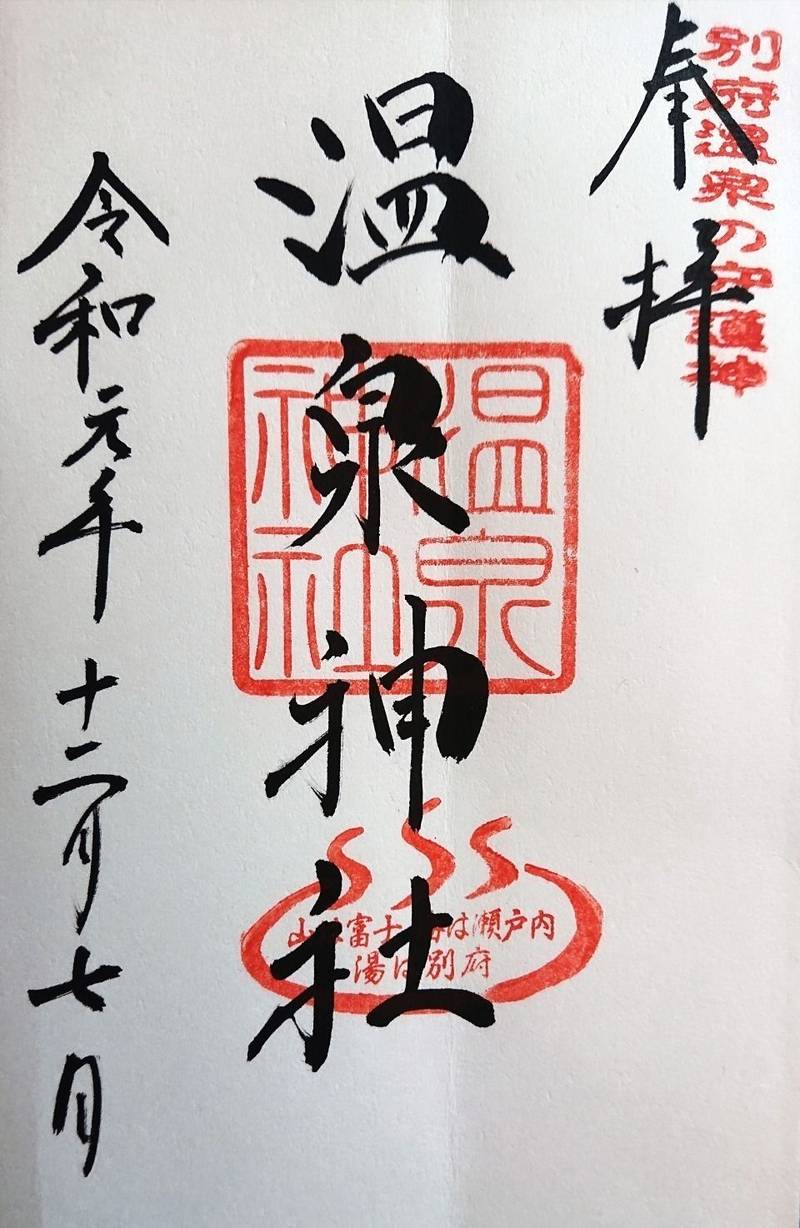 別府温泉の御護神
奉拝
温泉神社
温泉神社
山は富士海は瀬戸内
湯は別府
令和元年十二月七日